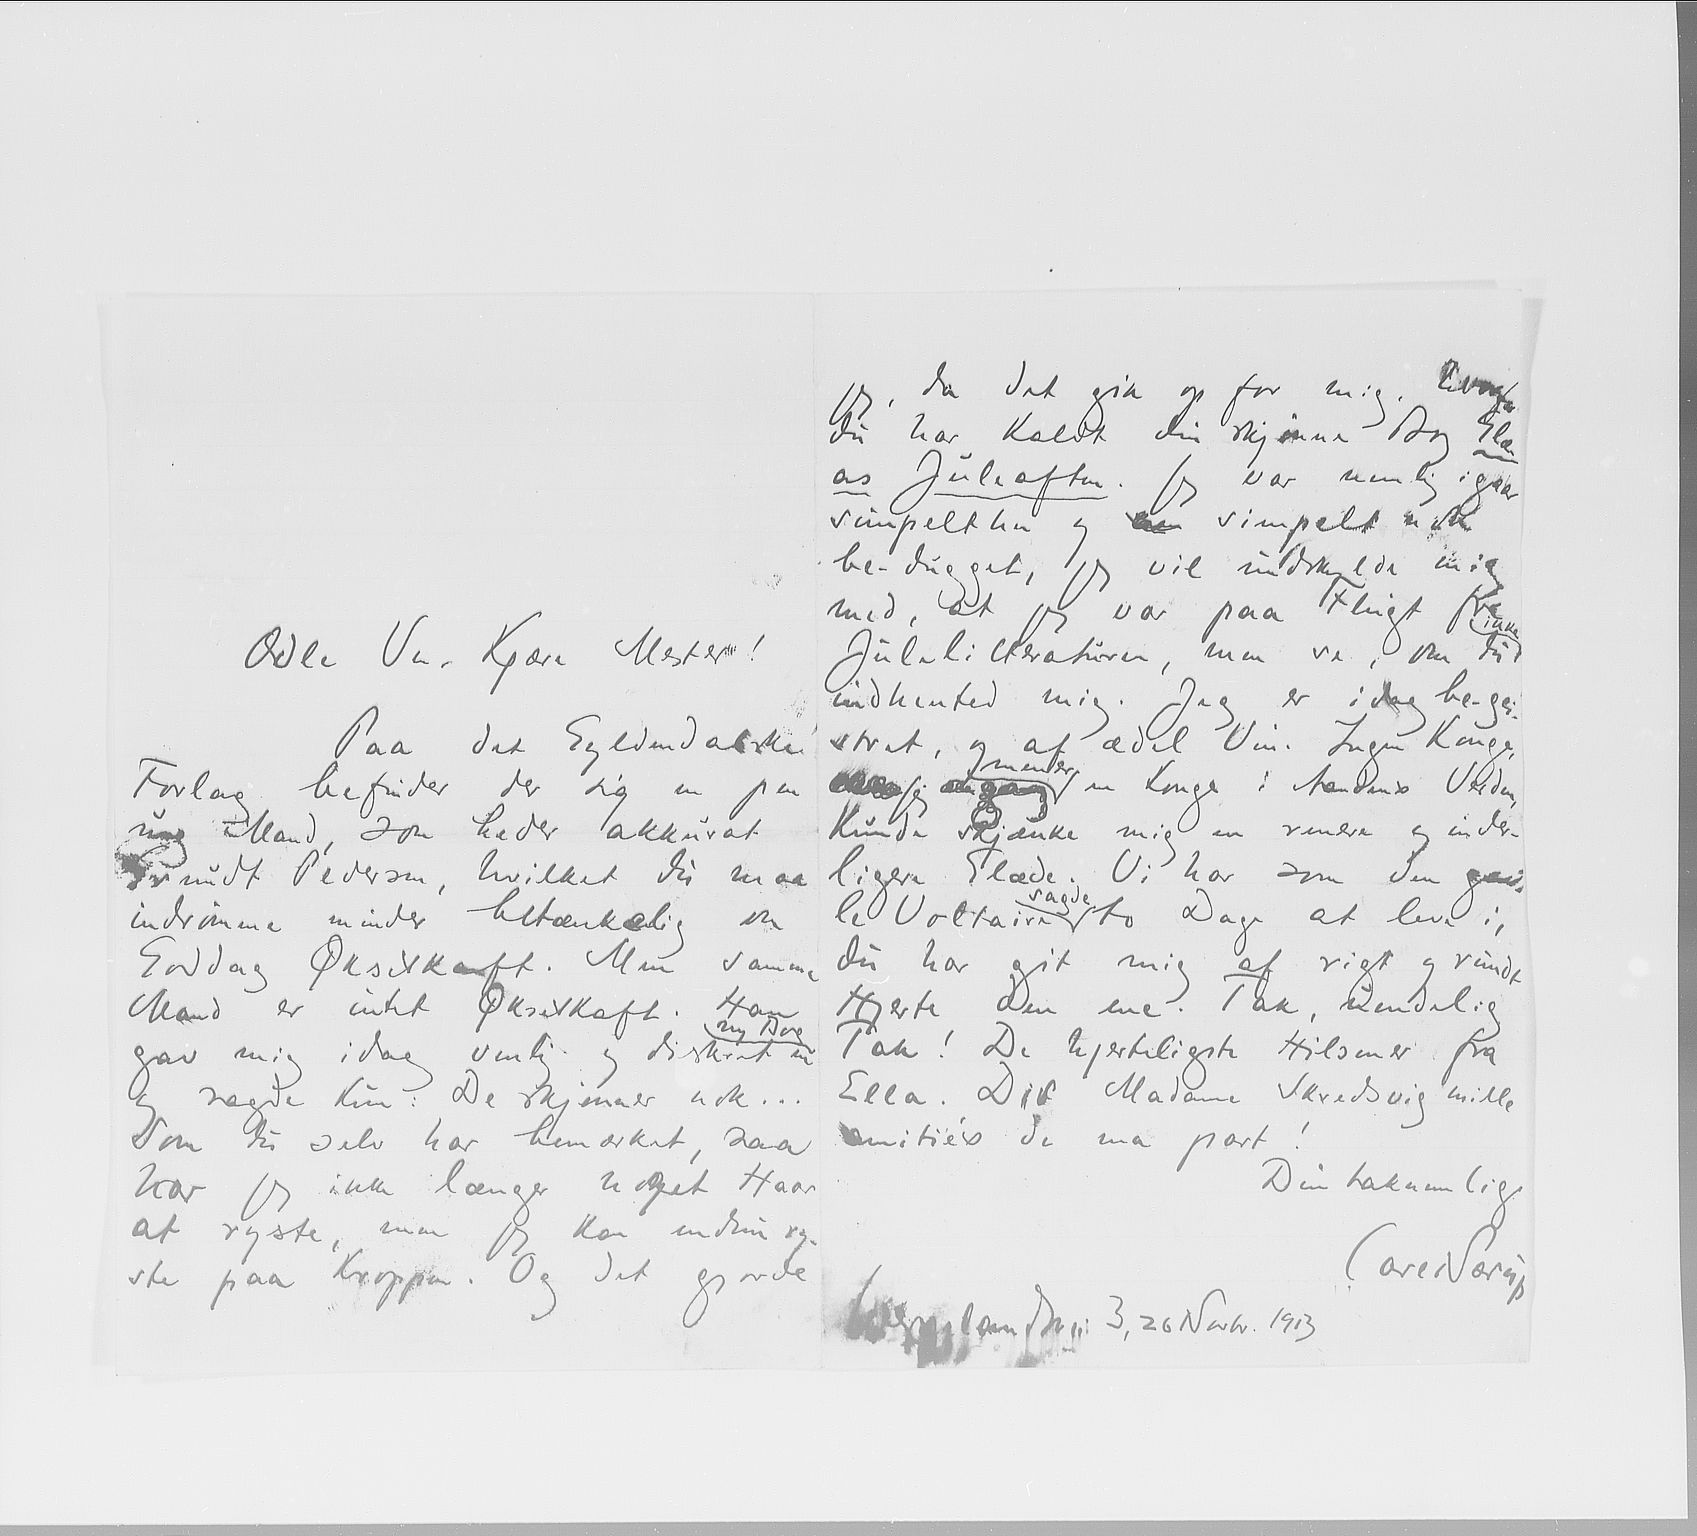 Ædle Ven. Kjære Mester!
Paa det Gyldendalske
Forlag befinder der sig en pen
ung Mand, som heder akkurat
Knudt Pedersen, hvilket du maa
indrömme minder betænkelig om
Goddag Økseskaft. Men samme
Mand er intet Økseskaft. Han
gav mig idag venlig og diskret en ny Bog
og sagde kun: De skjønner nok...
Som du selv har bemærket, saa
har jeg ikke længer noget Haar
at ryste, men jeg kan endnu ry-
ste paa Kroppen. Og det gjorde
jeg, da det gik op for mig,
du har kaldt din skjönne Bog Elœ-
as Juleaften. Jeg var nemlig igaar
simpelthen og simpelt nok
be-dugget, jeg vil undskylde mig
med, at jeg var paa Flugt fra
Julelitteraturen, men se, om du ikke
indhented mig. Jeg er idag be-gei-
stret, og af ædel Vin. Ingen Konge,
jeg mener en Konge i Aandens Verden,
kunde skjænke mig en renere og inder-
ligere Glæde. Vi har som den gam-
le Voltaire sagde to Dage at leve i,
du har git mig af rigt og rundt
Hjerte den ene. Tak, uendelig
Tak! De hjerteligste Hilsener fra
Ella. Dit Madame Skredsvig mille
amitiés de ma part!
Din taknemlige
Carl Nærup
3, 26 Novbr. 1913